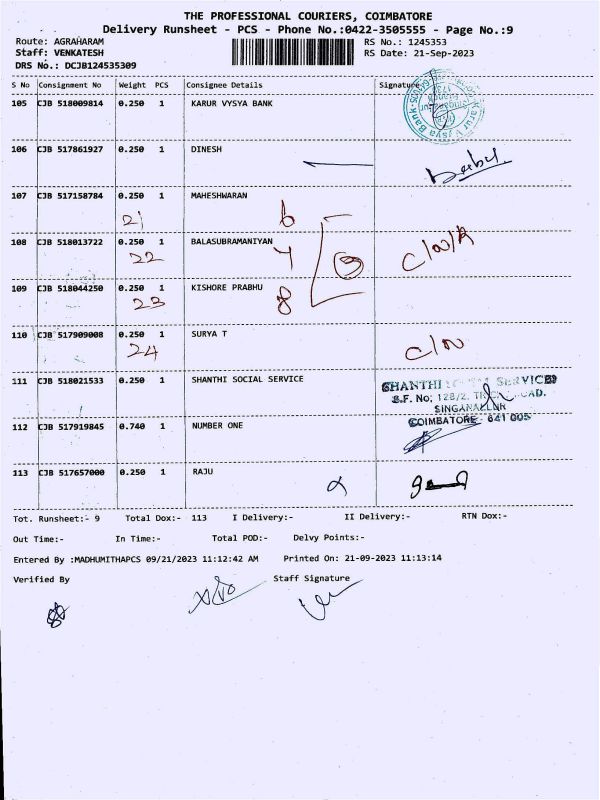 THE PROFESSIONAL COURIERS, COIMBATORE
Delivery Runsheet - PCS - Phone No.:0422-3505555 - Page No.:9
Route: AGRAHARAM RS No.: 1245353
Staff: VENKATESH RS Date: 21-Sep-2023
DRS No.: DCJB124535309
S No Consignment No Weight PCS Consignee Details Signature
105 CJB 518009814 0.250 1 KARUR VYSYA BANK
106 CJB 517861927 0.250 1 DINESH
107 CJB 517158784 0.250 1 MAHESHWARAN
21 6
108 CJB 518013722 0.250 1 BALASUBRAMANIYAN
22 4
109 CJB 518044250 0.250 1 KISHORE PRABHU
23 8
110 CJB 517909008 0.250 1 SURYA T
24
111 CJB 518021533 0.250 1 SHANTHI SOCIAL SERVICE
SHANTHI SOCIAL SERVICE
SINGANALLUR
COIMBATORE - 641 005
112 CJB 517919845 0.740 1 NUMBER ONE
113 CJB 517657000 0.250 1 RAJU
Tot. Runsheet:- 9 Total Dox:- 113 I Delivery:- II Delivery:- RTN Dox:-
Out Time:- In Time:- Total POD:- Delvy Points:-
Entered By :MADHUMITHAPCS 09/21/2023 11:12:42 AM Printed On: 21-09-2023 11:13:14
Verified By Staff Signature